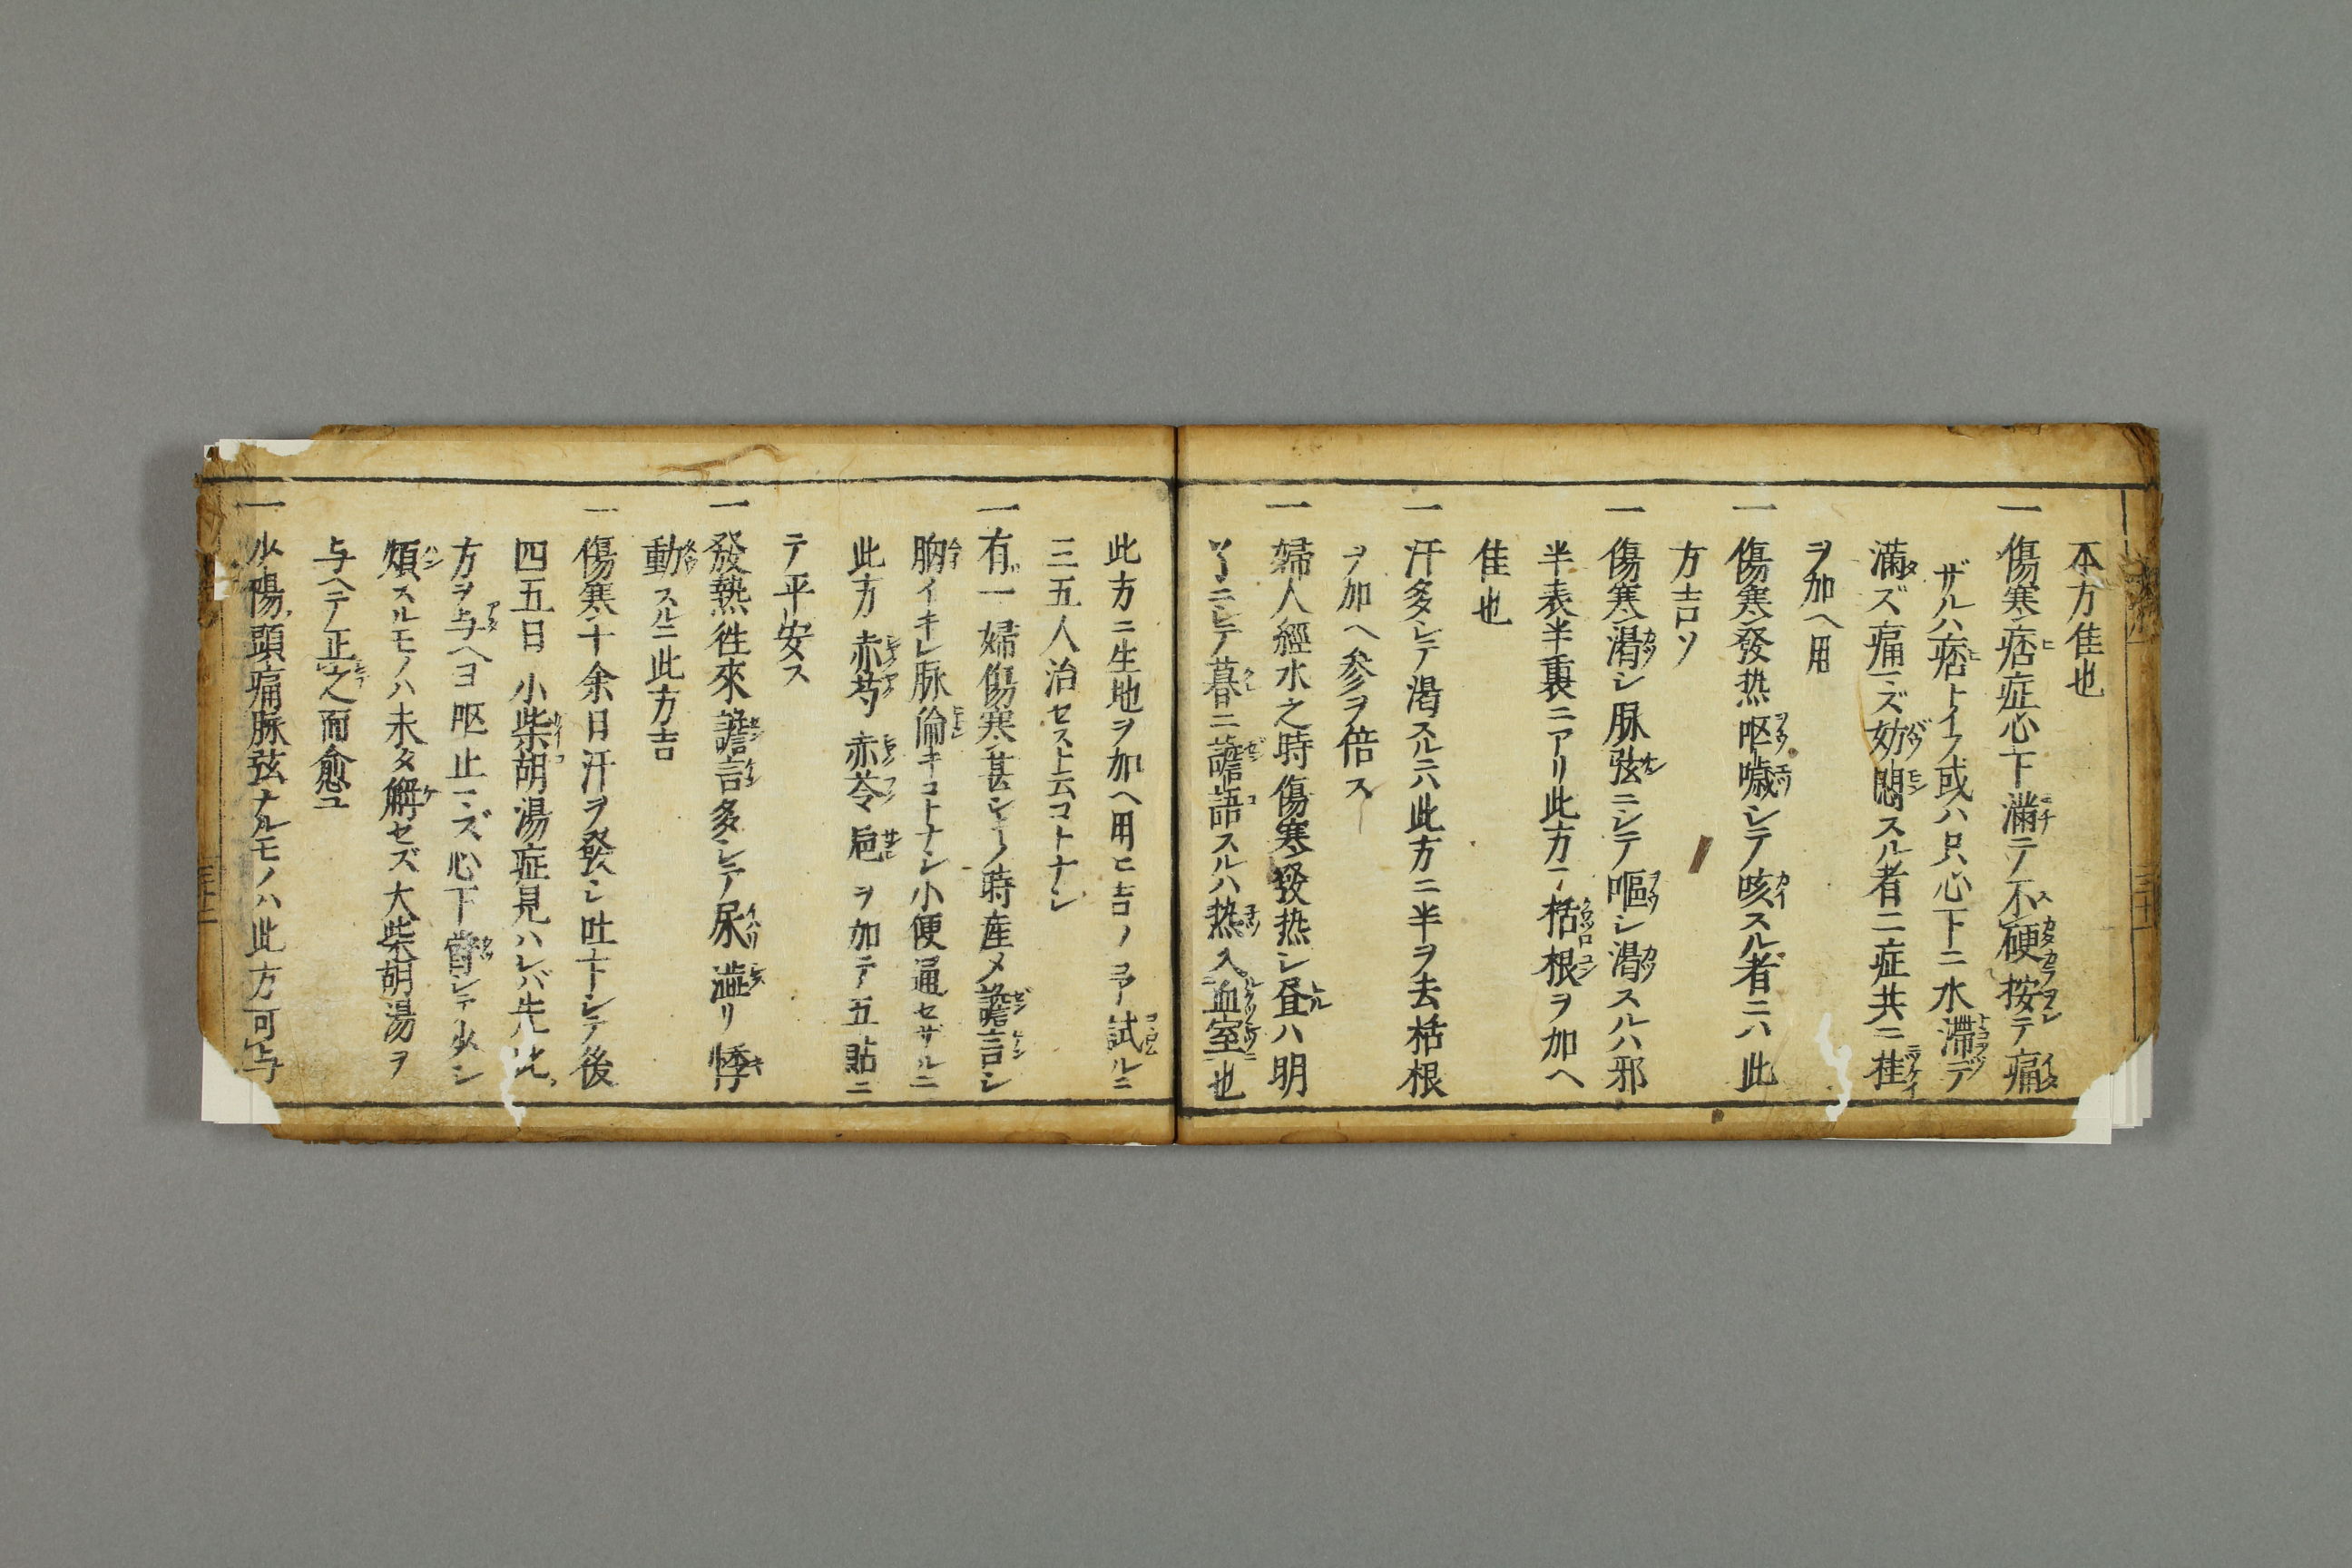 本方佳也
一傷寒痞症心下滿テ不硬按テ痛
ザルハ痞トイフ或ハ只心下ニ水滯テ
滿ズ痛ミズ妨悶スル者二症共ニ桂
ヲ加ヘ用
一傷寒發热呕噦シテ咳スル者ニハ此
方吉ソ
一傷寒渇シ脉弦ニシテ嘔シ渇スルハ邪
半表半裏ニアリ此方ニ栝根ヲ加ヘ
佳也
一汗多シテ渇スルニハ此方ニ半ヲ去栝根
ヲ加ヘ参ヲ倍ス
一婦人經水之時傷寒發热シ昼ハ明
了ニシテ暮ニ譫語スルハ热入血室也
此方ニ生地ヲ加ヘ用ヒ吉ノ試ルニ
三五人治セスト云コトナシ
一有一婦傷寒甚シノ時産メ譫言シ
胸イキレ脉倫キコトナシ小便通セザルニ
此方赤芍赤苓梔ヲ加テ五貼ニ
テ平安ス
一發熱徃來譫言多シテ尿澁リ悸
動スルニ此方吉
一傷寒十余日汗ヲ發シ吐下シテ後
四五日小柴胡湯症見ハレバ先此
方ヲ与ヘヨ呕止ミズ心下欝シテ少シ
煩スルモノハ未タ解セズ大柴胡湯ヲ
与ヘテ正之而愈ユ
一少陽頭痛脉弦ナルモノハ此方可与